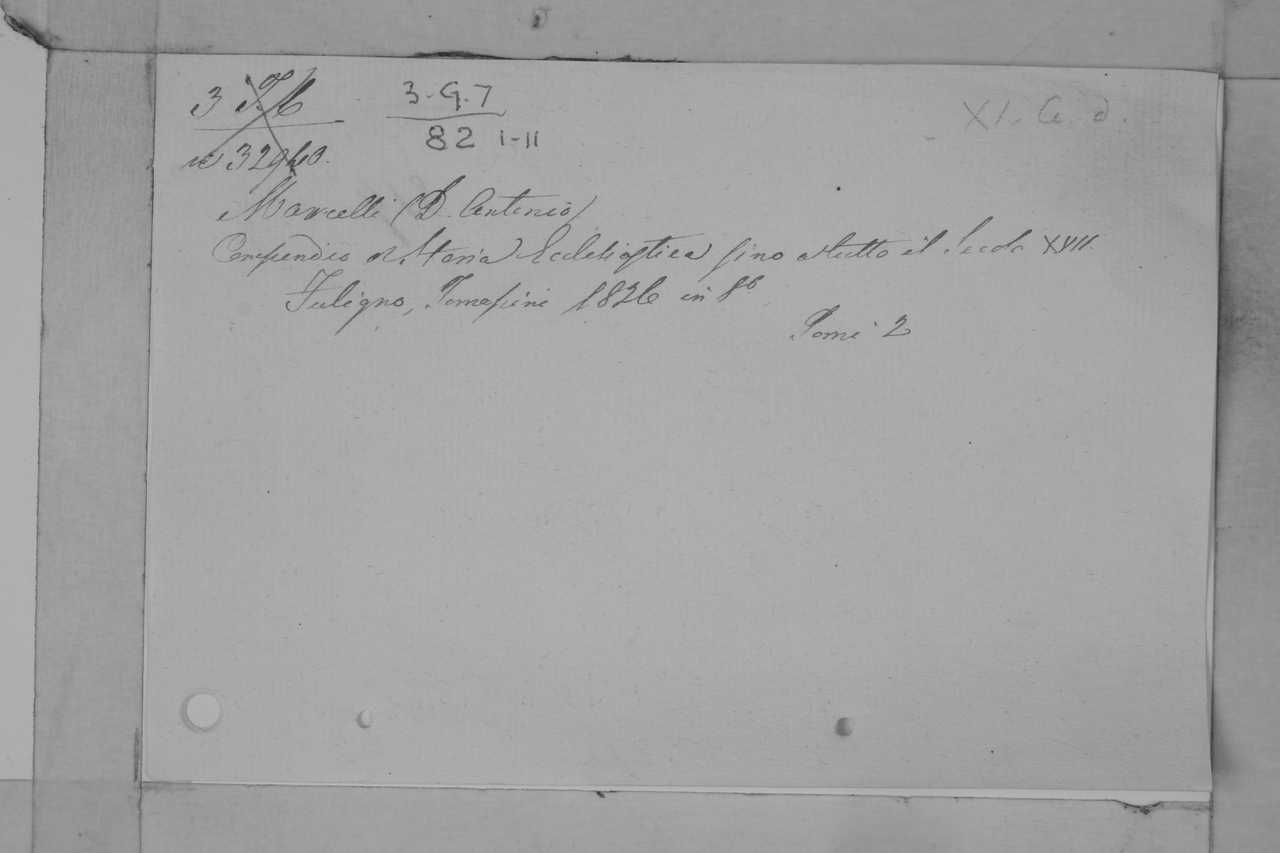 3 T. 6
3 - G. 7
XI. G. d.
n° 32940.
82 I-II
Marcelli (D. Antonio)
Compendio di Storia Ecclesiastica fino a tutto il Secolo XVII.
Fuligno, Tomassini 1826 in 8°
Tomi 2